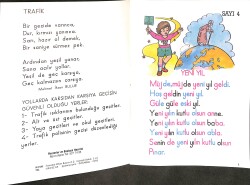 TRAFİK
Bir gözde
Dur, kırmızı yanınca.
Sarı, hazır ol demek,
Bir saniye sürmez pek.
Ardından yeşil yanar.
Sana
Yeşil de geç karşıya,
Geç kalmadan
YOLLARDA KARŞIDAN KARŞIYA GEÇİŞİN
GÜVENLİ OLDUĞU YERLER:
1- Trafik ışıklarının bulunduğu geçitler.
2- Alt ve üst geçitler.
3- Yaya geçitleri ve okul geçitleri.
4- Trafik polisinin geçişi düzenlediği
yerler.
SAYI 4
YENİ YIL
Müjde, müjde yeni yıl geldi.
Hoş geldin yeni yıl.
Güle güle eski yıl.
Yeni yılın kutlu olsun anne.
Yeni yılın kutlu olsun baba.
Yeni yılın kutlu olsun abla.
Senin de yeni yılın kutlu olsun
Pınar.